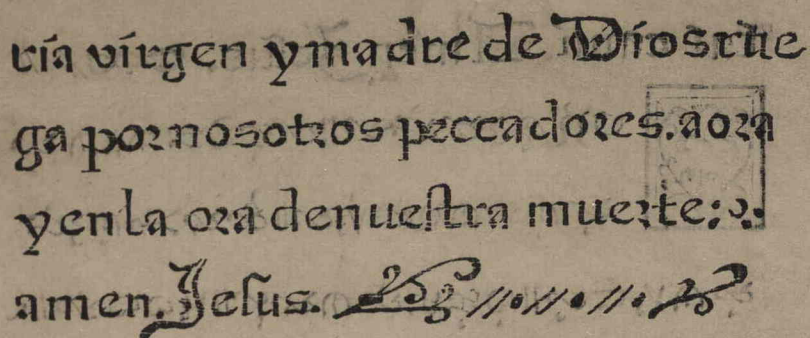 ría virgen y madre de Dios rue
ga por nosotros peccadores. aora
y en la ora de nuestra muerte:
amen. Jesus.